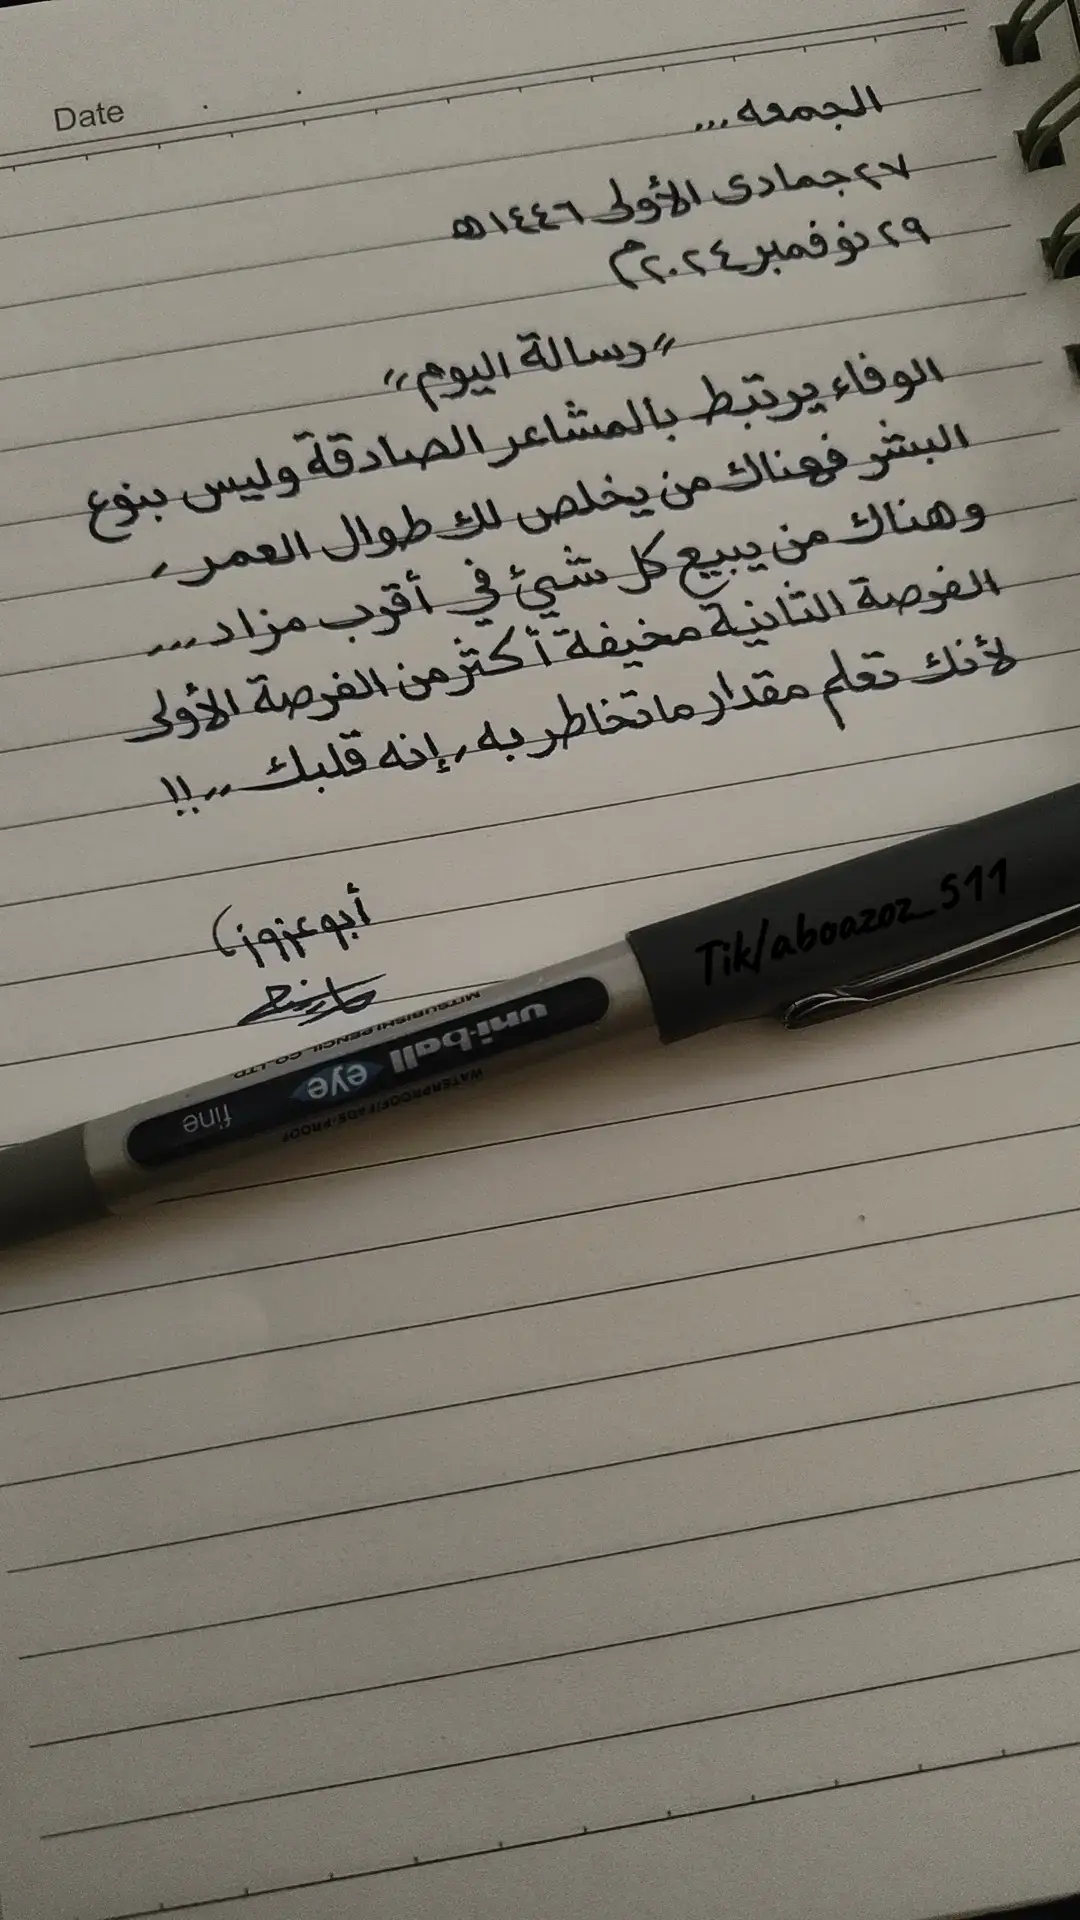 Date
الجمعه...
٢٧ جمادى الأولى ١٤٤٦هـ
٢٩ نوفمبر ٢٠٢٤م
"رسالة اليوم"
الوفاء يرتبط بالمشاعر الصادقة وليس بنوع
البشر فهناك من يخلص لك طوال العمر،
وهناك من يبيع كل شيئ في أقرب مزاد...
الفرصة الثانية مخيفة أكثر من الفرصة الأولى
لأنك تعلم مقدار ماتخاطر به، إنه قلبك..!!
أبوعزوز
Tik/aboazoz_511
MITSUBISHI PENCIL CO.,LTD
uni-ball
eye
fine
WATERPROOF/FADE-PROOF